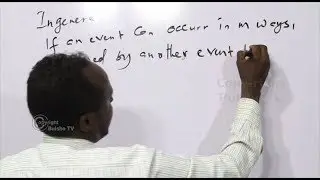 Ingener
If an event Can occur in m ways,
ed by another event
Copyright
Buisho TV